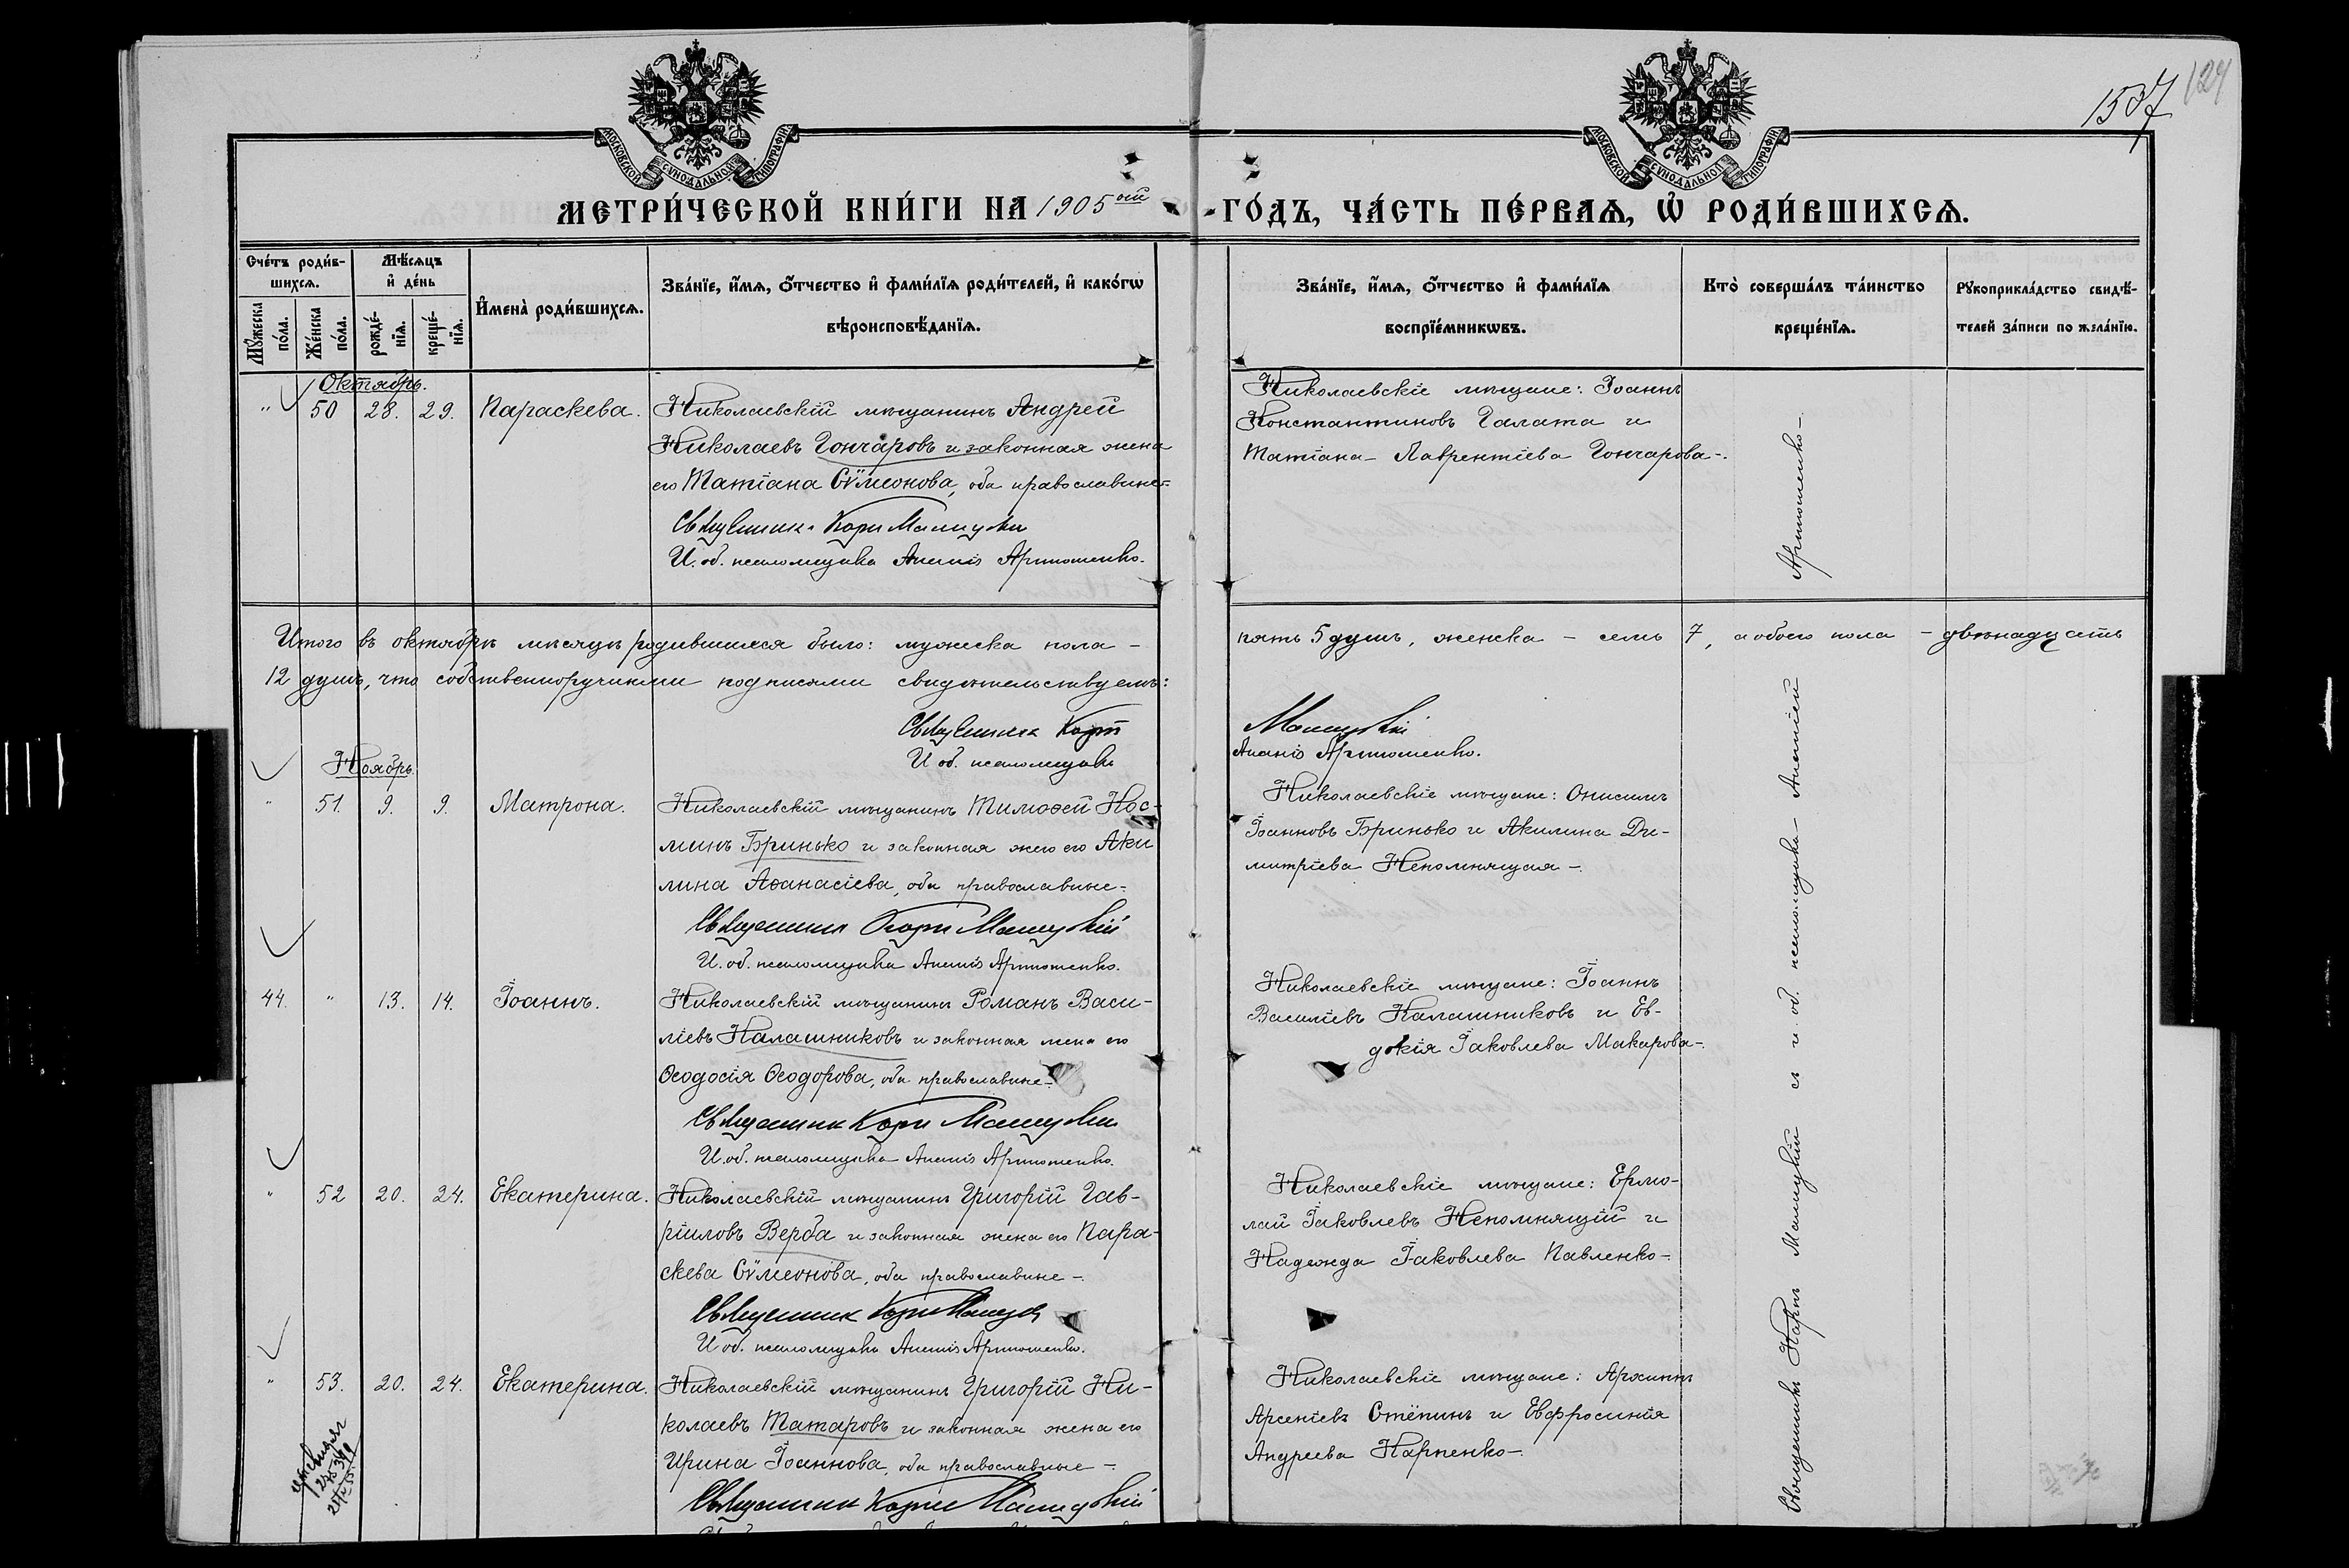 1537
124
МОСКОВСКОЙ СУНОДАЛЬНОЙ ТИПОГРАФІИ
МОСКОВСКОЙ СУНОДАЛЬНОЙ ТИПОГРАФІИ
МЕТРИ́ЧЕСКОЙ КНИ́ГИ НА 1905 ой ГО́ДЪ, ЧА́СТЬ ПЕ́РВАѦ, Ѡ҆ РОДИ́ВШИХСѦ.
Сче́тъ роди́в-
шихсѧ.
Мꙋ́жеска по́ла.
Же́нска по́ла.
Мѣ́сѧцъ
и҆ де́нь
рожде́-
нїѧ.
креще́-
нїѧ.
И҆мена̀ роди́вшихсѧ.
Зва́нїе, и҆́мѧ, ѻ҆́тчество и҆ фами́лїѧ роди́телей, и҆ како́гѡ
вѣроисповѣ́данїѧ.
Зва́нїе, и҆́мѧ, ѻ҆́тчество и҆ фами́лїѧ
воспрїе́мникѡвъ.
Кто̀ соверша́лъ та́инство
креще́нїѧ.
Рꙋкоприкла́дство свидѣ́-
телей за́писи по жела́нїю.
Октябрь.
" 50 28. 29. Параскева.
Николаевскій мѣщанинъ Андрей
Николаевъ Гончаровъ и законная жена
его Татіана Сѵмеонова, оба православные
Священникъ Карпъ Машуцкій
И. об. псаломщика Ананія Артюшенко.
Николаевскіе мѣщане: Іоаннъ
Константиновъ Галата и
Татіана Лаврентіева Гончарова-.
Итого въ октябрѣ мѣсяцѣ родившихся было: мужеска пола – пять 5 душъ, женска – семь 7, а обоего пола – двѣнадцать
12 душъ, что собственноручными подписями свидѣтельствуемъ:
Священникъ Карпъ
И об. псаломщика Ананія Артюшенко.
Ноябрь.
" 51. 9. 9. Матрона.
Николаевскій мѣщанинъ Тимоѳей Кос-
минъ Бринько и законная жена его Аки
лина Аѳанасіева, оба православные-
Священникъ Карпъ Машуцкій
И. об. псаломщика Ананія Артюшенко.
Николаевскіе мѣщане: Онисимъ
Іоанновъ Бринько и Акилина Ди-
митріева Непомнящая-.
44. " 13. 14. Іоаннъ.
Николаевскій мѣщанинъ Романъ Васи-
ліевъ Калашниковъ и законная жена его
Ѳеодосія Ѳеодорова, оба православные-.
Священникъ Карпъ Машуцкій
И. об. псаломщика Ананія Артюшенко.
Николаевскіе мѣщане: Іоаннъ
Василіевъ Калашниковъ и Ев-
докія Іаковлева Макарова-.
" 52 20. 24. Екатерина.
Николаевскій мѣщанинъ Григорій Гав-
ріиловъ Верба и законная жена его Пара-
скева Сѵмеонова, оба православные-.
Священникъ Карпъ
И об. псаломщика Ананія Артюшенко.
Николаевскіе мѣщане: Ермо-
лай Іаковлевъ Непомнящій и
Надежда Іаковлева Павленко-.
" 53. 20. 24. Екатерина.
Николаевскій мѣщанинъ Григорій Ни-
колаевъ Татаровъ и законная жена его
Ирина Іоаннова, оба православные-.
Священникъ Карпъ Машуцкій
Николаевскіе мѣщане: Архиппъ
Арсеніевъ Стёпинъ и Евфросинія
Андреева Карпенко-.
Священникъ Карпъ Машуцкій съ и. об. псаломщика Ананіей Артюшенко-